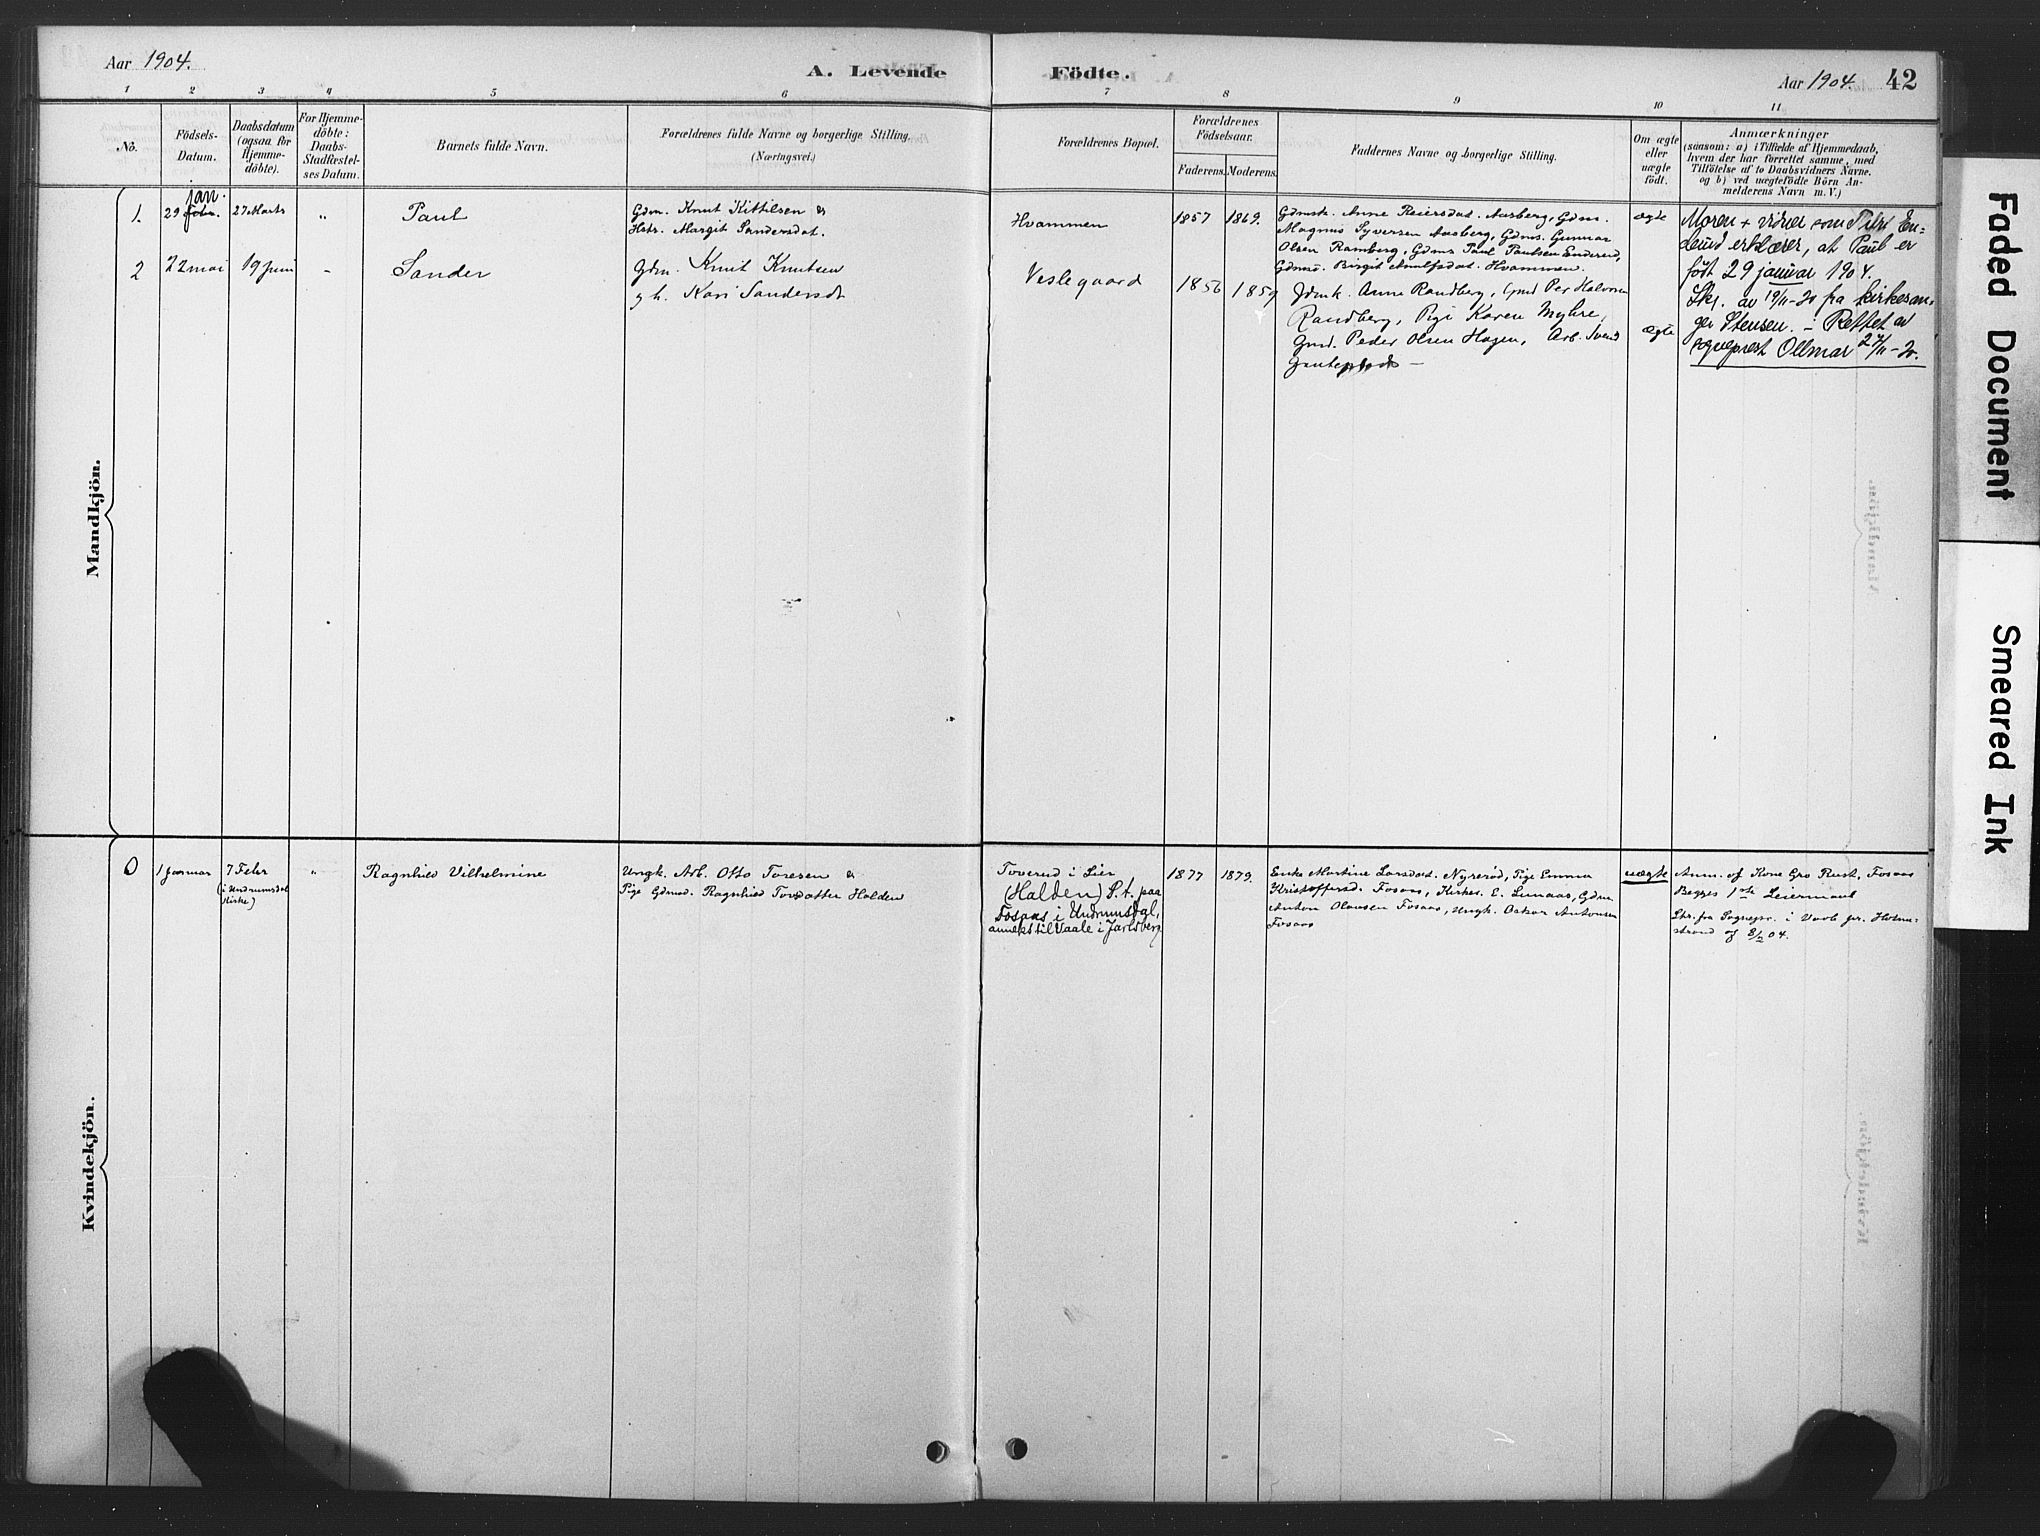 Aar 1904.
A. Levende
Födte.
Aar 1904.
42
1 2 3 4 5 6 7 8 9 10 11
No.
Födsels-
Datum.
Daabsdatum
(ogsaa for
Hjemme-
döbte).
For Hjemme-
döbte:
Daabs-
Stadfæstel-
ses Datum.
Barnets fulde Navn.
Forældrenes fulde Navne og borgerlige Stilling.
(Næringsvei.)
Forældrenes Bopæl.
Forældrenes
Födselsaar.
Faderens.
Moderens.
Faddernes Navne og borgerlige Stilling.
Om ægte
eller
uægte
født.
Anmærkninger
(saasom: a) i Tilfælde af Hjemmedaab,
hvem der har forrettet samme, med
Tilföielse af to Daabsvidners Navne.
og b) ved uægtefödte Börn An-
melderens Navn m. V.)
Mandkjön.
jan.
1.
29 Febr.
27 Marts
"
Paul
Gdm. Knut Kittilsen &
Hstr. Margit Sandersdat.
Hvammen
1857
1869.
Gdmsk. Anne Reiersdat. Aasberg, Gdm.
Magnus Syversen Aasberg, Gdms. Gunnar
Olsen Ramberg, Gdms Paul Paulsen Enderud,
Gdmsd. Birgit Arnulfsdat. Hvammen.
ægte
Moren + vidner som Petri En-
derud erklærer, at Paul er
født 29 januar 1904.
Skr. av 19/11-20 fra kirkesan-
ger Stensen. – Rettet av
sogneprest Ollmar 27/11-20.
2
22 mai
19 juni
-
Sander
Gdm. Knut Knutsen
g h. Kari Sandersdt
Veslegaard
1856
1859
Gdmk. Anne Randberg, Gmd Per Halvorsen
Randberg, Pige Karen Myhre,
Gmd. Peder Olsen Hagen, Arb. Svend
Gruteplads –
ægte
Kvindekjön.
0
1 Januar
7 Febr
(i Undrumsdal
Kirke)
"
Ragnhild Vilhelmine
Ungk. Arb. Otto Toresen &
Pige Gdmsd. Ragnhild Torsdatter Halden
Toverud i Lier
(Halden) S.t. paa
Fosaas i Undrumsdal,
annekstil Vaale i Jarlsberg
1877
1879.
Enke Martine Larsdat. Nyrerød, Pige Emma
Kristoffersd. Fosaas, Kirkes. E. Lunaas, Gdm
Anton Olavsen Fosaas, Ungk. Oskar Antonsen
Fosaas
uægte
Anm. af Kone Gro Rust, Fosaas
Begges 1ste Leiermaal
Skr. fra Sognepr. i Vaale pr. Holme-
strand af 8/2 04.
Faded Document
Smeared Ink